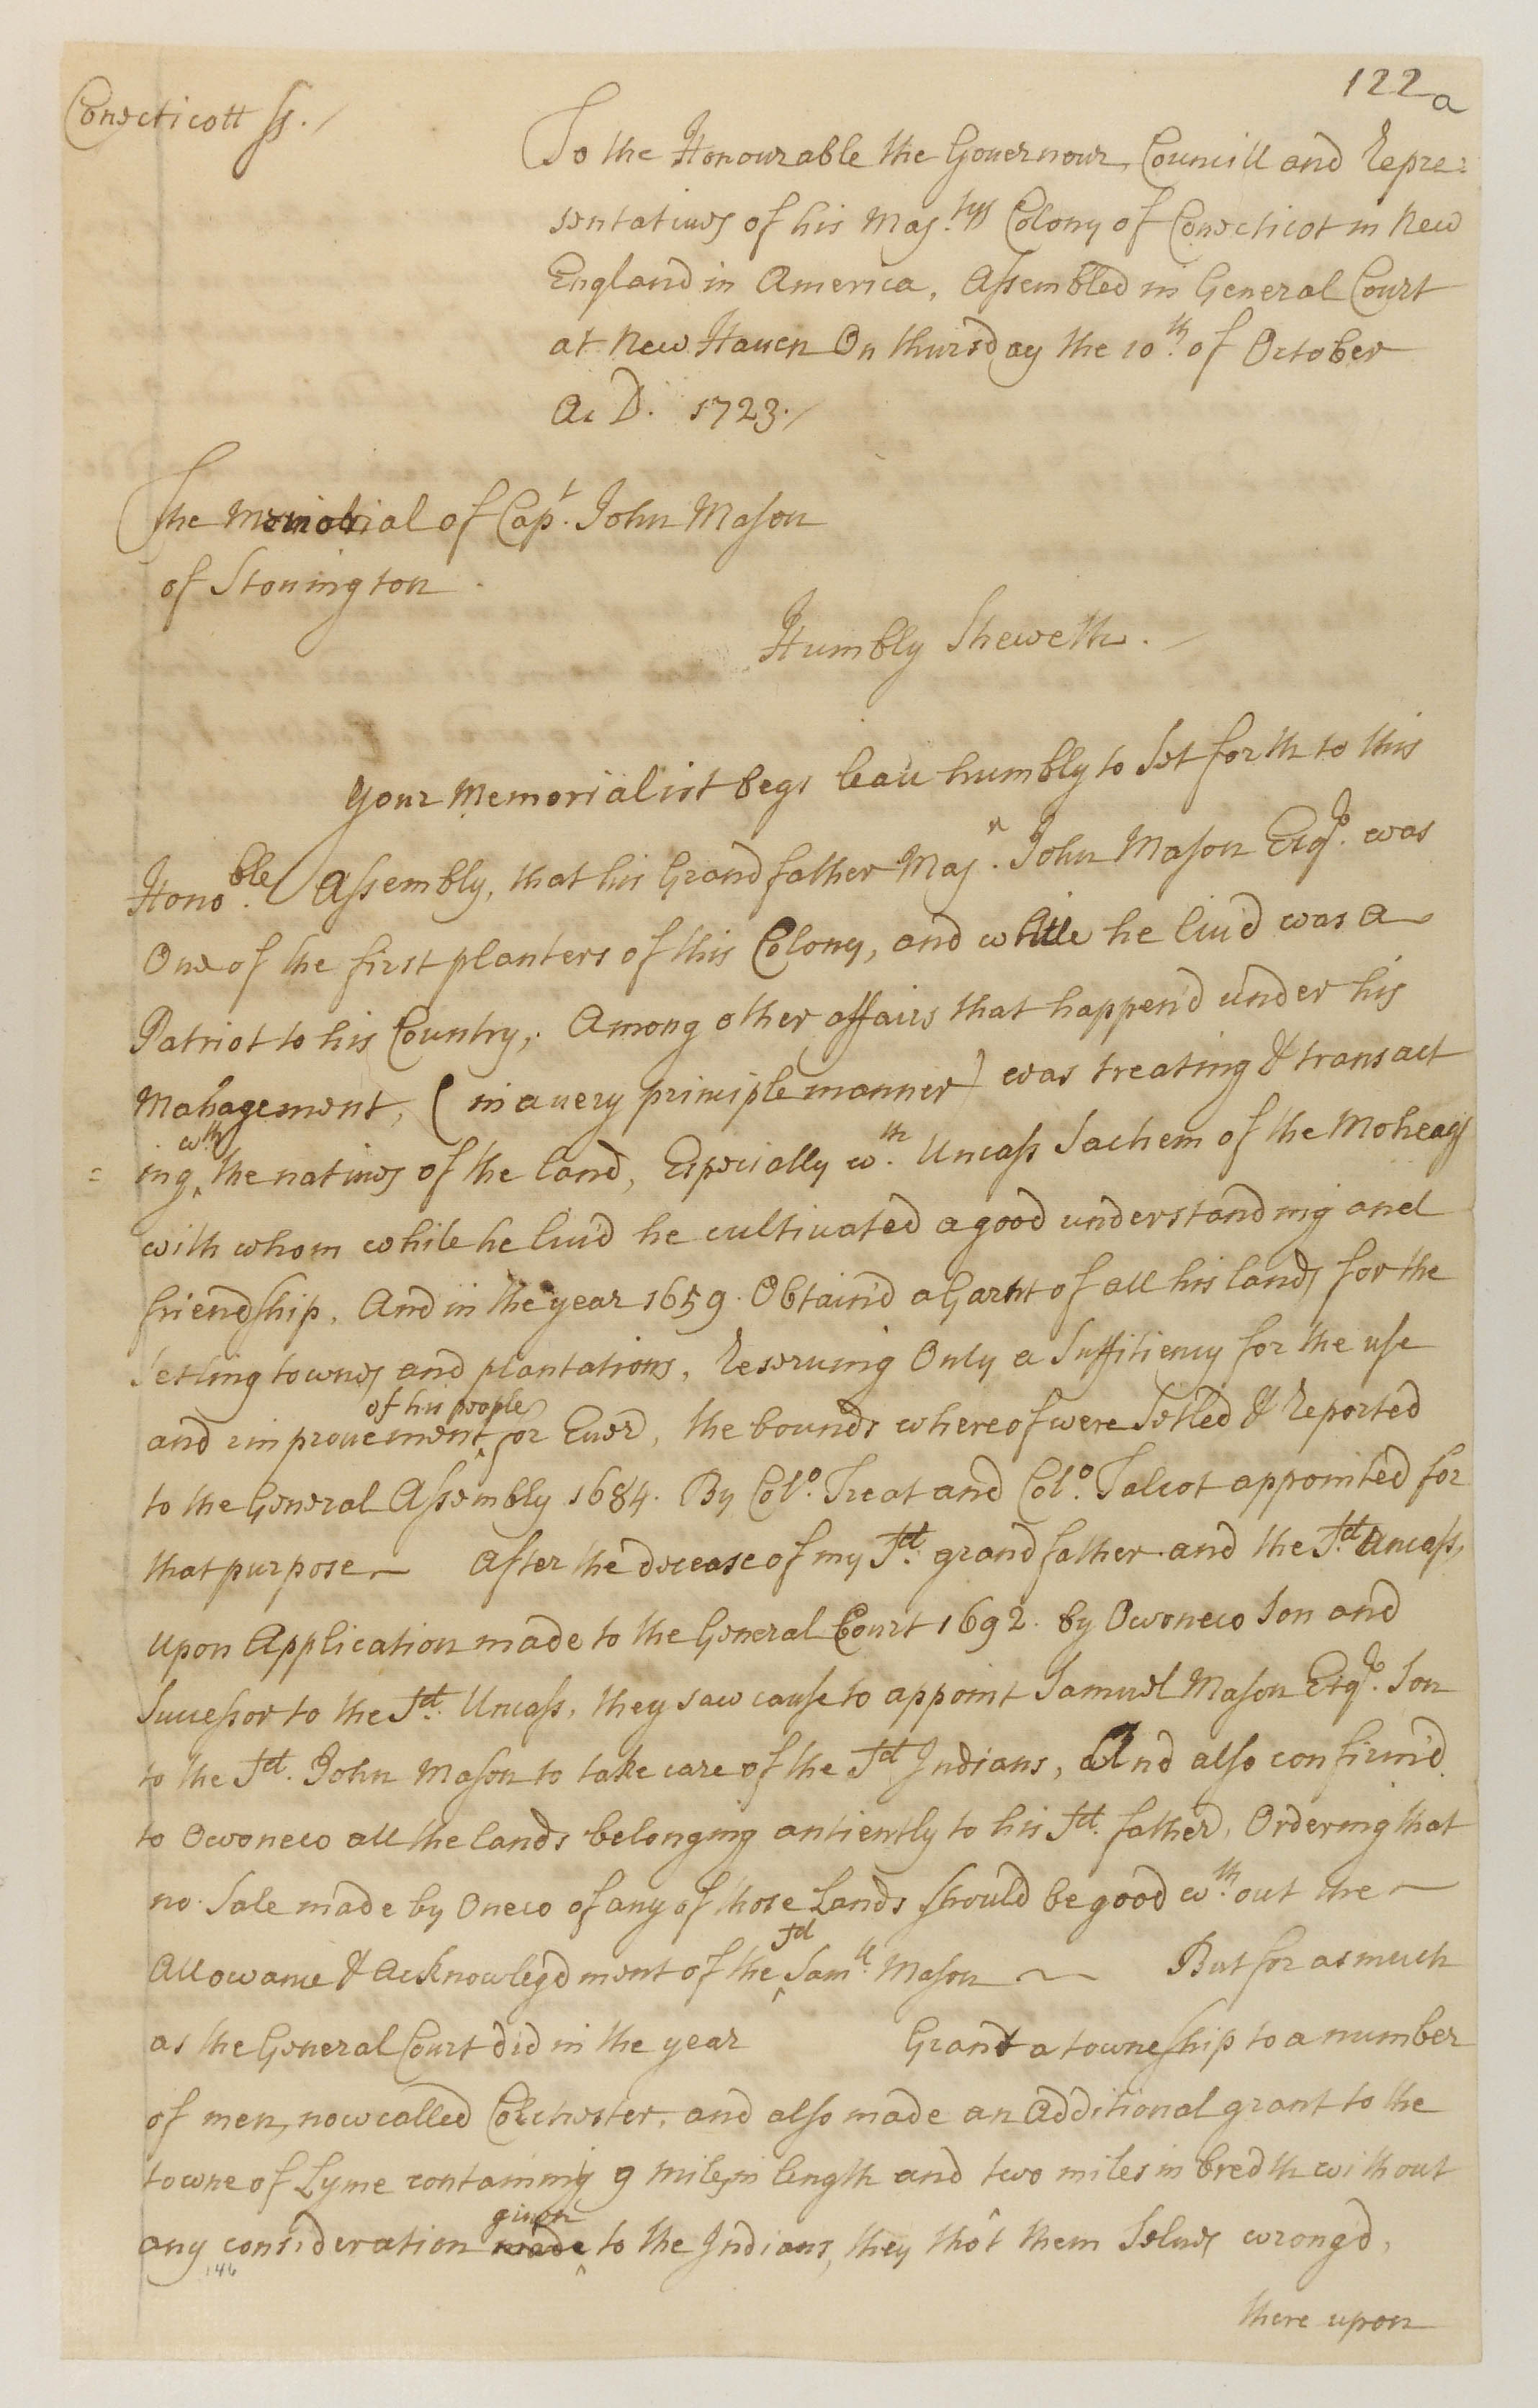 122
a
Conecticott ss. /
To the Honourable the Governour, Councill and Repre=
sentatives of his Maj.tys Colony of Conecticot in New
England in America, Assembled in General Court
at New Haven On thursday the 10th. of October
A. D. 1723. /
The Memorial of Capt. John Mason
of Stonington
Humbly Sheweth.
Your Memorialist begs leav humbly to Set forth to this
Honoble. Assembly, that his Grandfather Majr. John Mason Esqr. was
One of the first planters of this Colony, and while he liv'd was a
Patriot to his Country; Among other affairs that happen'd under his
Management, (in a very principle manner) was treating & transact
= ing wth the natives of the land, Especially wth. Uncass Sachem of the Moheags
with whom while he liv'd he cultivated a good understanding and
friendship, And in the year 1659. Obtain'd a Garnt of all his lands for the
Setling townes and plantations, Reserving Only a Suffitiency for the use
and improvement of his people for Ever, the bounds whereof were Setled & Reported
to the General Assembly 1684. By Colo. Treat and Colo. Talcot appointed for
that purpose ~ After the decease of my sd. grandfather and the sd. Uncass,
Upon Application made to the General Court 1692. by Owoneco Son and
Successor to the sd. Uncass, they saw cause to appoint Samuel Mason Esqr. Son
to the sd. John Mason to take care of the sd Indians, And also confirm'd
to Owoneco all the lands belonging antiently to his sd. father, Ordering that
no Sale made by Oneco of any of those Lands should be good wth. out the ~
Allowance & Acknowlegdment of the sd Samll. Mason ~ But for as much
as the General Court did in the year Grant a towneship to a number
of men, now called Colchester, and also made an Additional grant to the
towne of Lyme containing 9 miles in length and two miles in bredth without
any consideration made given to the Indians, they thôt them Selves wrong'd,
146
there upon